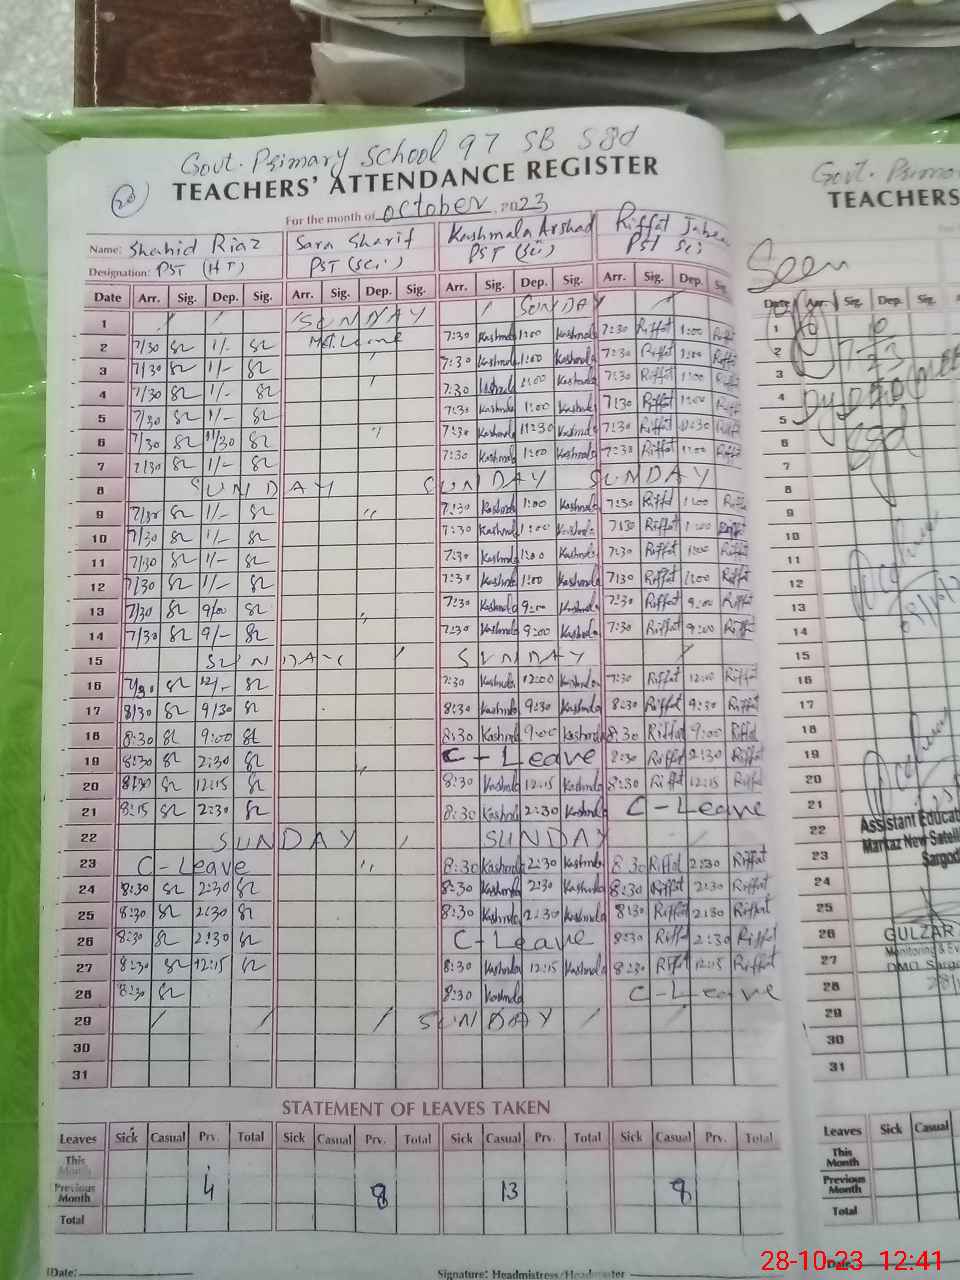 Govt. Primary School 97 SB Sgd
20
TEACHERS' ATTENDANCE REGISTER
For the month of October, 2023
Name: Shahid Riaz Sara Sharif Kashmala Arshad Riffat
Designation: PST (HT) PST (Sci) PST (Sci) PST Sci
Date Arr. Sig. Dep. Sig. Arr. Sig. Dep. Sig. Arr. Sig. Dep. Sig. Arr. Sig. Dep. Sig.
1 SUNDAY SUNDAY
2 7/30 1/- Leave 7:30 Kashmala 1:00 Kashmala 7:30 Riffat 1:00 Riffat
3 7/30 1/- 7:30 Kashmala 1:00 Kashmala 7:30 Riffat 1:00 Riffat
4 7/30 1/- 7:30 Kashmala 1:00 Kashmala 7:30 Riffat 1:00 Riffat
5 7/30 1/- 7:30 Kashmala 1:00 Kashmala 7:30 Riffat 1:00 Riffat
6 7/30 11/30 7:30 Kashmala 11:30 Kashmala 7:30 Riffat 11:30 Riffat
7 7/30 1/- 7:30 Kashmala 1:00 Kashmala 7:30 Riffat 1:00 Riffat
8 SUNDAY SUNDAY SUNDAY
9 7/30 1/- 7:30 Kashmala 1:00 Kashmala 7:30 Riffat 1:00 Riffat
10 7/30 1/- 7:30 Kashmala 1:00 Kashmala 7:30 Riffat 1:00 Riffat
11 7/30 1/- 7:30 Kashmala 1:00 Kashmala 7:30 Riffat 1:00 Riffat
12 7/30 1/- 7:30 Kashmala 1:00 Kashmala 7:30 Riffat 1:00 Riffat
13 7/30 9/00 7:30 Kashmala 9:00 Kashmala 7:30 Riffat 9:00 Riffat
14 7/30 9/- 7:30 Kashmala 9:00 Kashmala 7:30 Riffat 9:00 Riffat
15 SUNDAY SUNDAY
16 7/30 12/- 7:30 Kashmala 12:00 Kashmala 7:30 Riffat 12:00 Riffat
17 8/30 9/30 8:30 Kashmala 9:30 Kashmala 8:30 Riffat 9:30 Riffat
18 8:30 9:00 8:30 Kashmala 9:00 Kashmala 8:30 Riffat 9:00 Riffat
19 8:30 2:30 C-Leave 8:30 Riffat 2:30 Riffat
20 8:30 12:15 8:30 Kashmala 12:15 Kashmala 8:30 Riffat 12:15 Riffat
21 8:15 2:30 8:30 Kashmala 2:30 Kashmala C-Leave
22 SUNDAY SUNDAY
23 C-Leave 8:30 Kashmala 2:30 Kashmala 8:30 Riffat 2:30 Riffat
24 8:30 2:30 8:30 Kashmala 2:30 Kashmala 8:30 Riffat 2:30 Riffat
25 8:30 2:30 8:30 Kashmala 2:30 Kashmala 8:30 Riffat 2:30 Riffat
26 8:30 2:30 C-Leave 8:30 Riffat 2:30 Riffat
27 8:30 12:15 8:30 Kashmala 12:15 Kashmala 8:30 Riffat 12:15 Riffat
28 8:30 8:30 Kashmala C-Leave
29 SUNDAY
30
31
STATEMENT OF LEAVES TAKEN
Leaves Sick Casual Prv. Total Sick Casual Prv. Total Sick Casual Prv. Total Sick Casual Prv. Total
This Month
Previous Month 4 8 13 8
Total
Date: Signature: Headmistress/Headmaster
Govt. Prima
TEACHERS
Seen
Date Arr. Sig. Dep. Sig.
1
2
3
4
5
6
7
8
9
10
11
12
13
14
15
16
17
18
19
20
21
22
23
24
25
26
27
28
29
30
31
Sgd
Assistant Educat
Markaz New Satell
Sargod
GULZAR
Monitoring & Ev
DMO Sargo
Leaves Sick Casual
This Month
Previous Month
Total
Date:
28-10-23 12:41